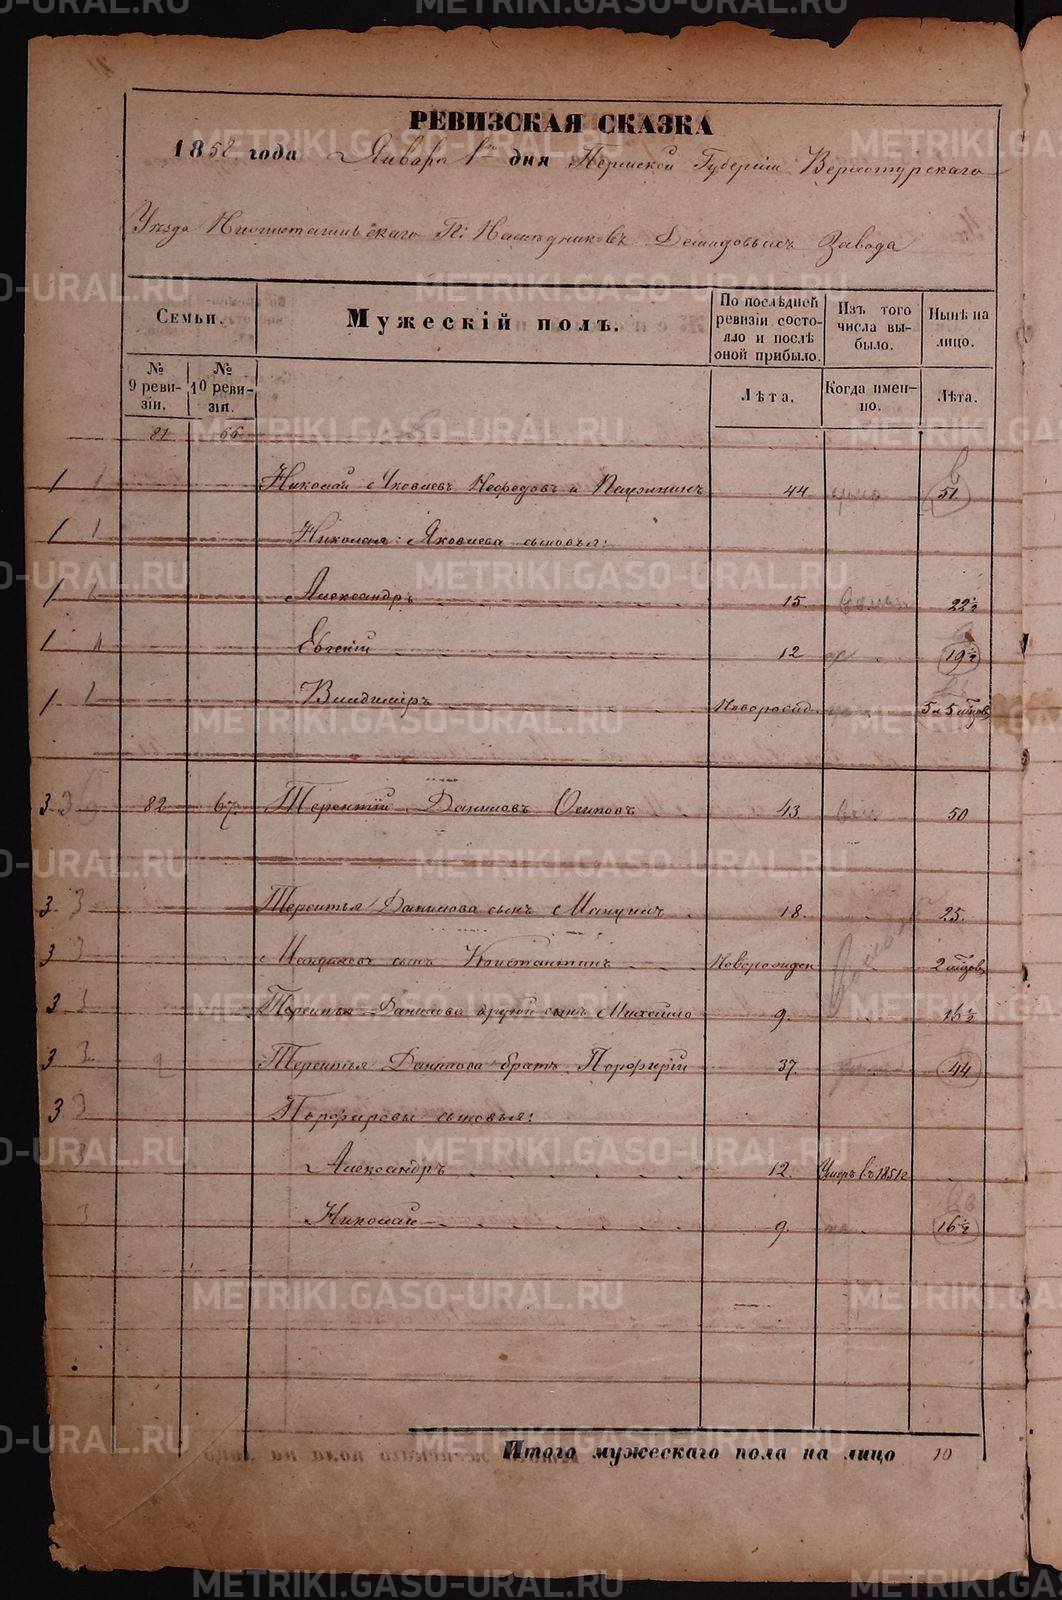 РЕВИЗСКАЯ СКАЗКА
1858 года Января 1го дня Пермской Губерніи Верхотурскаго
Уѣзда Нижнетагильскаго Гг: Наслѣдниковъ Демидовыхъ Завода
Семьи.
Мужескій полъ.
По послѣдней ревизіи состояло и послѣ оной прибыло.
Изъ того числа выбыло.
Нынѣ на лицо.
№ 9 ревизіи.
№ 10 ревизіи.
Лѣта.
Когда именно.
Лѣта.
81 66
1 1 Николай Яковлевъ Нефедовъ и 44 51
1 1 Николая Яковлева сыновья:
1 1 Александръ 15 22½
1 1 Евгеній 12 19½
1 1 Владиміръ Новорожд. 5 л 5 мѣсяц
3 3 82 67. Терентій Даниловъ Осиповъ 43 50
3 3 Терентья Данилова сынъ 18. 25.
3 3 сынъ Константинъ Новорожден 2 мѣсяц
3 3 Терентья Данилова другой сынъ Михайло 9. 16½
3 3 Терентья Данилова братъ Порфирій 37. 44
3 3 Порфировы сыновья:
3 Александръ 12. Умеръ въ 1851 г
3 Николай 9. 16½
Итого мужескаго пола на лицо 10
METRIKI.GASO-URAL.RU